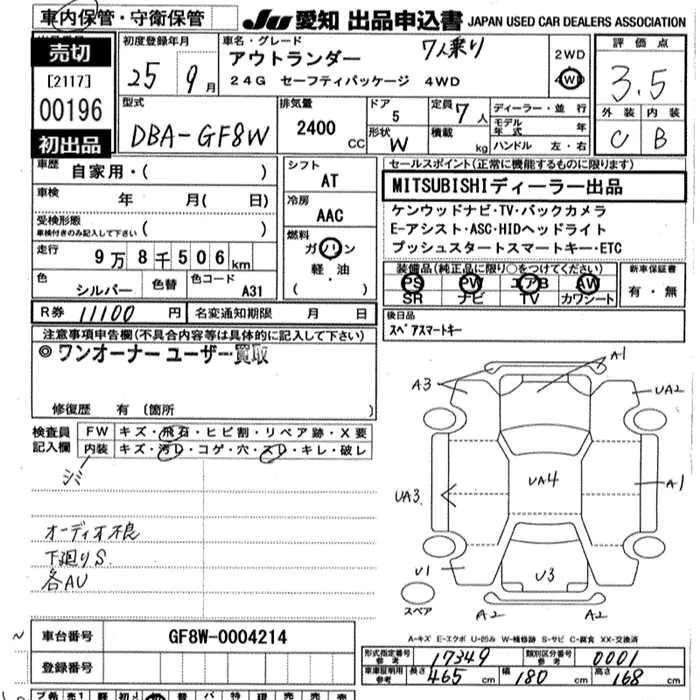 車内保管・守衛保管
JU 愛知 出品申込書 JAPAN USED CAR DEALERS ASSOCIATION
売切
[2117]
00196
初出品
初度登録年月
25 9月
車名・グレード
7人乗り
アウトランダー
24G セーフティパッケージ 4WD
2WD
4WD
評価点
3.5
外装 内装
C B
型式
DBA-GF8W
排気量
2400 CC
ドア
5
形状
W
定員 7 人
積載 kg
ディーラー・並行
モデル年式 年
ハンドル 左・右
車歴 自家用・( )
車検 年 月( 日)
受検形態
車検付きのみ記入して下さい ( )
走行 9万8千506km
色 シルバー
色替
色コード A31
シフト
AT
冷房
AAC
燃料
ガソリン
軽油
( ・ )
セールスポイント(正常に機能するものに限ります)
MITSUBISHIディーラー出品
ケンウッドナビ・TV・バックカメラ
E-アシスト・ASC・HIDヘッドライト
プッシュスタートスマートキー・ETC
装備品(純正品に限り○をつけてください)
PS PW エアB AW
SR ナビ TV カワシート
新車保証書
有・無
R券 11100 円
名変通知期限 月 日
後日品
スペアスマートキー
注意事項申告欄(不具合内容等は具体的に記入して下さい)
◎ワンオーナー ユーザー買取
修復歴 有(箇所 )
検査員
記入欄
FW キズ・飛石・ヒビ割・リペア跡・X要
内装 キズ・汚レ・コゲ・穴・スレ・キレ・破レ
シミ
オーディオ不良
下廻りS
各AU
A3
A1
UA2
UA3
UA4
A1
U1
U3
スペア
A2
A2
A-キズ E-エクボ U-凹み W-補修跡 S-サビ C-腐食 XX-交換済
車台番号 GF8W-0004214
登録番号
形式指定番号
参考 17349
類別区分番号
参考 0001
車庫証明用
参考 長さ 465 cm 幅 180 cm 高さ 168 cm